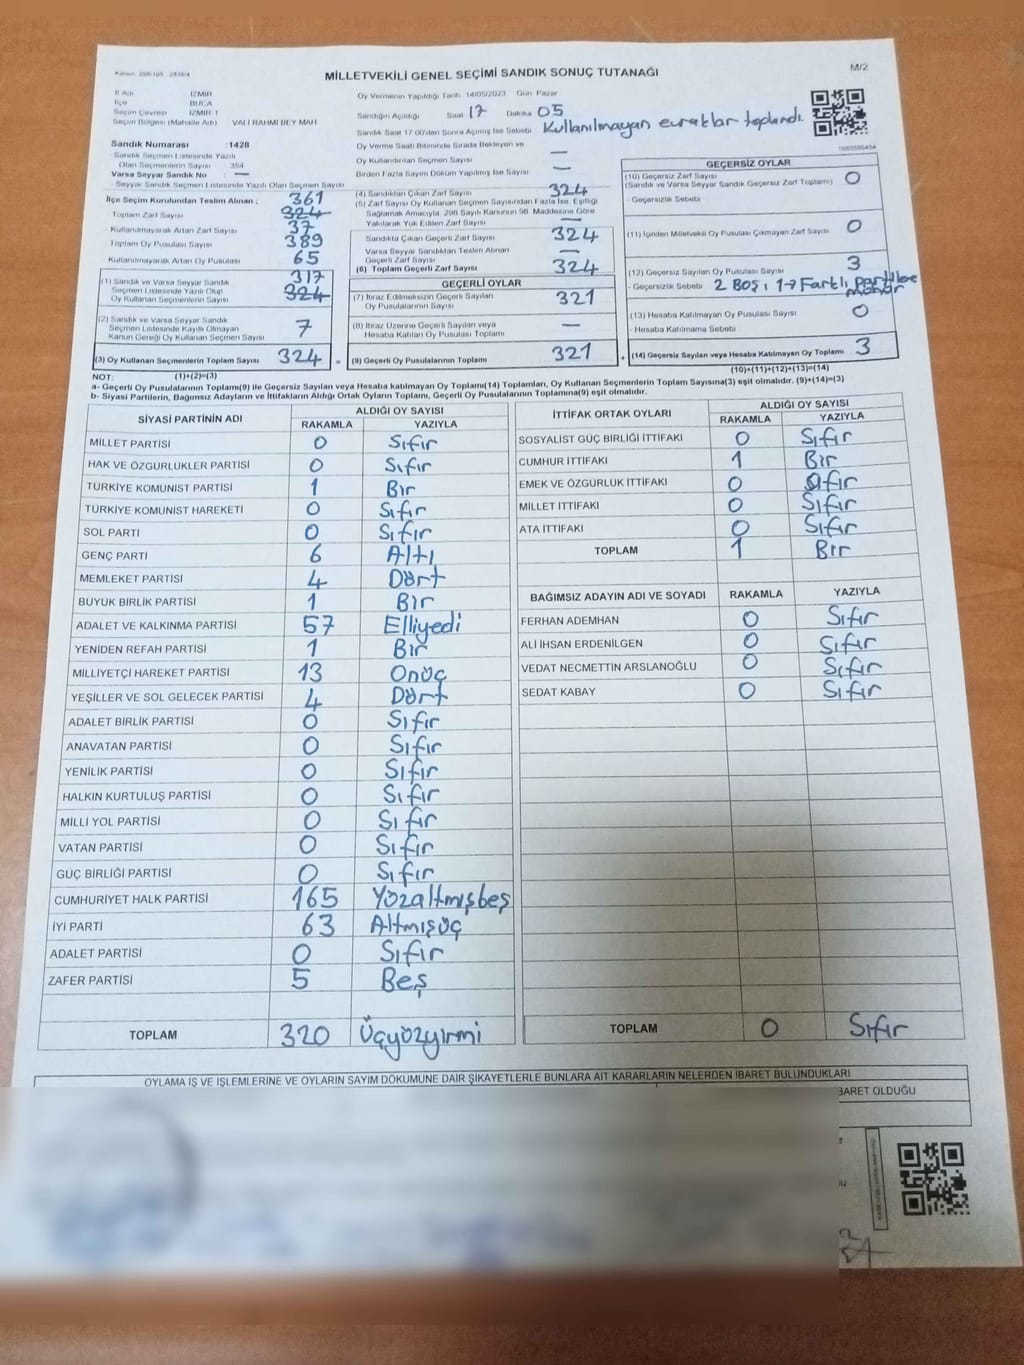 Kanun: 298/105 - 2839/4
MİLLETVEKİLİ GENEL SEÇİMİ SANDIK SONUÇ TUTANAĞI
M/2
İl Adı İZMİR
İlçe BUCA
Seçim Çevresi İZMİR-1
Seçim Bölgesi (Mahalle Adı) VALİ RAHMİ BEY MAH.
Sandık Numarası :1428
Sandık Seçmen Listesinde Yazılı
Olan Seçmenlerin Sayısı 354
Varsa Seyyar Sandık No : —
Seyyar Sandık Seçmen Listesinde Yazılı Olan Seçmen Sayısı
Oy Vermenin Yapıldığı Tarih 14/05/2023 Gün Pazar
Sandığın Açıldığı Saat 17 Dakika 05
Sandık Saat 17:00'den Sonra Açılmış İse Sebebi Kullanılmayan evraklar toplandı.
Oy Verme Saati Bitiminde Sırada Bekleyen ve
Oy Kullandırılan Seçmen Sayısı —
Birden Fazla Sayım Döküm Yapılmış İse Sayısı —
İlçe Seçim Kurulundan Teslim Alınan : 361
Toplam Zarf Sayısı 324
Kullanılmayarak Artan Zarf Sayısı 37
Toplam Oy Pusulası Sayısı 389
Kullanılmayarak Artan Oy Pusulası 65
(1) Sandık ve Varsa Seyyar Sandık 317
Seçmen Listesinde Yazılı Olup 324
Oy Kullanan Seçmenlerin Sayısı
(2) Sandık ve Varsa Seyyar Sandık
Seçmen Listesinde Kayıtlı Olmayan 7
Kanun Gereği Oy Kullanan Seçmen Sayısı
(3) Oy Kullanan Seçmenlerin Toplam Sayısı 324 =
(4) Sandıktan Çıkan Zarf Sayısı 324
(5) Zarf Sayısı Oy Kullanan Seçmen Sayısından Fazla İse, Eşitliği
Sağlamak Amacıyla, 298 Sayılı Kanunun 98. Maddesine Göre
Yakılarak Yok Edilen Zarf Sayısı —
Sandıkta Çıkan Geçerli Zarf Sayısı 324
Varsa Seyyar Sandıktan Teslim Alınan
Geçerli Zarf Sayısı —
(6) Toplam Geçerli Zarf Sayısı 324
GEÇERLİ OYLAR
(7) İtiraz Edilmeksizin Geçerli Sayılan 321
Oy Pusulalarının Sayısı
(8) İtiraz Üzerine Geçerli Sayılan veya —
Hesaba Katılan Oy Pusulası Toplamı
(9) Geçerli Oy Pusulalarının Toplamı 321 +
1083595454
GEÇERSİZ OYLAR
(10) Geçersiz Zarf Sayısı 0
(Sandık ve Varsa Seyyar Sandık Geçersiz Zarf Toplamı)
Geçersizlik Sebebi
(11) İçinden Milletvekili Oy Pusulası Çıkmayan Zarf Sayısı 0
(12) Geçersiz Sayılan Oy Pusulası Sayısı 3
- Geçersizlik Sebebi 2 Boş, 1 → Farklı partilere mühür
(13) Hesaba Katılmayan Oy Pusulası Sayısı 0
- Hesaba Katılmama Sebebi
(14) Geçersiz Sayılan veya Hesaba Katılmayan Oy Toplamı 3
NOT: (1)+(2)=(3) (10)+(11)+(12)+(13)=(14)
a- Geçerli Oy Pusulalarının Toplamı(9) ile Geçersiz Sayılan veya Hesaba katılmayan Oy Toplamı(14) Toplamları, Oy Kullanan Seçmenlerin Toplam Sayısına(3) eşit olmalıdır. (9)+(14)=(3)
b- Siyasi Partilerin, Bağımsız Adayların ve İttifakların Aldığı Ortak Oyların Toplamı, Geçerli Oy Pusulalarının Toplamına(9) eşit olmalıdır.
SİYASİ PARTİNİN ADI ALDIĞI OY SAYISI
RAKAMLA YAZIYLA
MİLLET PARTİSİ 0 Sıfır
HAK VE ÖZGÜRLÜKLER PARTİSİ 0 Sıfır
TÜRKİYE KOMÜNİST PARTİSİ 1 Bir
TÜRKİYE KOMÜNİST HAREKETİ 0 Sıfır
SOL PARTİ 0 Sıfır
GENÇ PARTİ 6 Altı
MEMLEKET PARTİSİ 4 Dört
BÜYÜK BİRLİK PARTİSİ 1 Bir
ADALET VE KALKINMA PARTİSİ 57 Elliyedi
YENİDEN REFAH PARTİSİ 1 Bir
MİLLİYETÇİ HAREKET PARTİSİ 13 Onüç
YEŞİLLER VE SOL GELECEK PARTİSİ 4 Dört
ADALET BİRLİK PARTİSİ 0 Sıfır
ANAVATAN PARTİSİ 0 Sıfır
YENİLİK PARTİSİ 0 Sıfır
HALKIN KURTULUŞ PARTİSİ 0 Sıfır
MİLLİ YOL PARTİSİ 0 Sıfır
VATAN PARTİSİ 0 Sıfır
GÜÇ BİRLİĞİ PARTİSİ 0 Sıfır
CUMHURİYET HALK PARTİSİ 165 Yüzaltmışbeş
İYİ PARTİ 63 Altmışüç
ADALET PARTİSİ 0 Sıfır
ZAFER PARTİSİ 5 Beş
TOPLAM 320 Üçyüzyirmi
İTTİFAK ORTAK OYLARI ALDIĞI OY SAYISI
RAKAMLA YAZIYLA
SOSYALİST GÜÇ BİRLİĞİ İTTİFAKI 0 Sıfır
CUMHUR İTTİFAKI 1 Bir
EMEK VE ÖZGÜRLÜK İTTİFAKI 0 Sıfır
MİLLET İTTİFAKI 0 Sıfır
ATA İTTİFAKI 0 Sıfır
TOPLAM 1 Bir
BAĞIMSIZ ADAYIN ADI VE SOYADI RAKAMLA YAZIYLA
FERHAN ADEMHAN 0 Sıfır
ALİ İHSAN ERDENİLGEN 0 Sıfır
VEDAT NECMETTİN ARSLANOĞLU 0 Sıfır
SEDAT KABAY 0 Sıfır
TOPLAM 0 Sıfır
OYLAMA İŞ VE İŞLEMLERİNE VE OYLARIN SAYIM DÖKÜMÜNE DAİR ŞİKAYETLERLE BUNLARA AİT KARARLARIN NELERDEN İBARET BULUNDUKLARI
BARET OLDUĞU